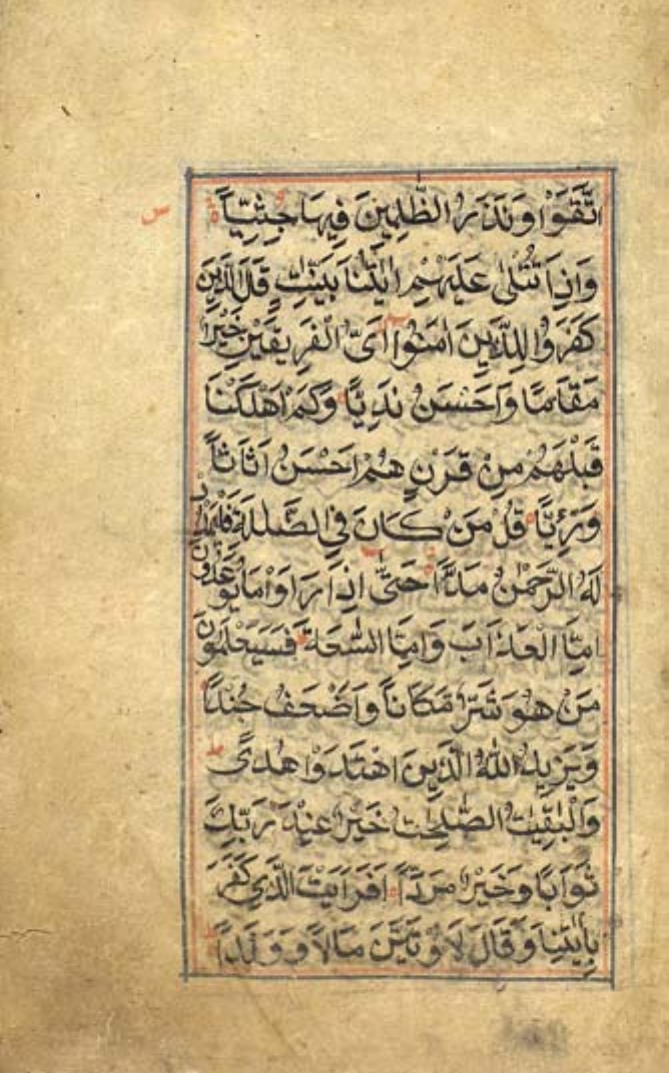 اتَّقَوْا وَنَذَرُ الظّٰلِمِينَ فِيهَا جِثِيًّا
وَإِذَا تُتْلٰى عَلَيْهِمْ اٰيٰتُنَا بَيِّنٰتٍ قَالَ الَّذِينَ
كَفَرُوا لِلَّذِينَ اٰمَنُوا اَىُّ الْفَرِيقَيْنِ خَيْرٌ
مَقَامًا وَاَحْسَنُ نَدِيًّا وَكَمْ اَهْلَكْنَا
قَبْلَهُمْ مِنْ قَرْنٍ هُمْ اَحْسَنُ اَثَاثًا
وَرِءْيًا قُلْ مَنْ كَانَ فِي الضَّلٰلَةِ فَلْيَمْدُدْ
لَهُ الرَّحْمٰنُ مَدًّا حَتّٰى اِذَا رَاَوْا مَا يُوعَدُونَ
اِمَّا الْعَذَابَ وَاِمَّا السَّاعَةَ فَسَيَعْلَمُونَ
مَنْ هُوَ شَرٌّ مَكَانًا وَاَضْعَفُ جُنْدًا
وَيَزِيدُ اللّٰهُ الَّذِينَ اهْتَدَوْا هُدًى
وَالْبٰقِيٰتُ الصّٰلِحٰتُ خَيْرٌ عِنْدَ رَبِّكَ
ثَوَابًا وَخَيْرٌ مَرَدًّا اَفَرَاَيْتَ الَّذِي كَفَرَ
بِاٰيٰتِنَا وَقَالَ لَاُوتَيَنَّ مَالًا وَوَلَدًا